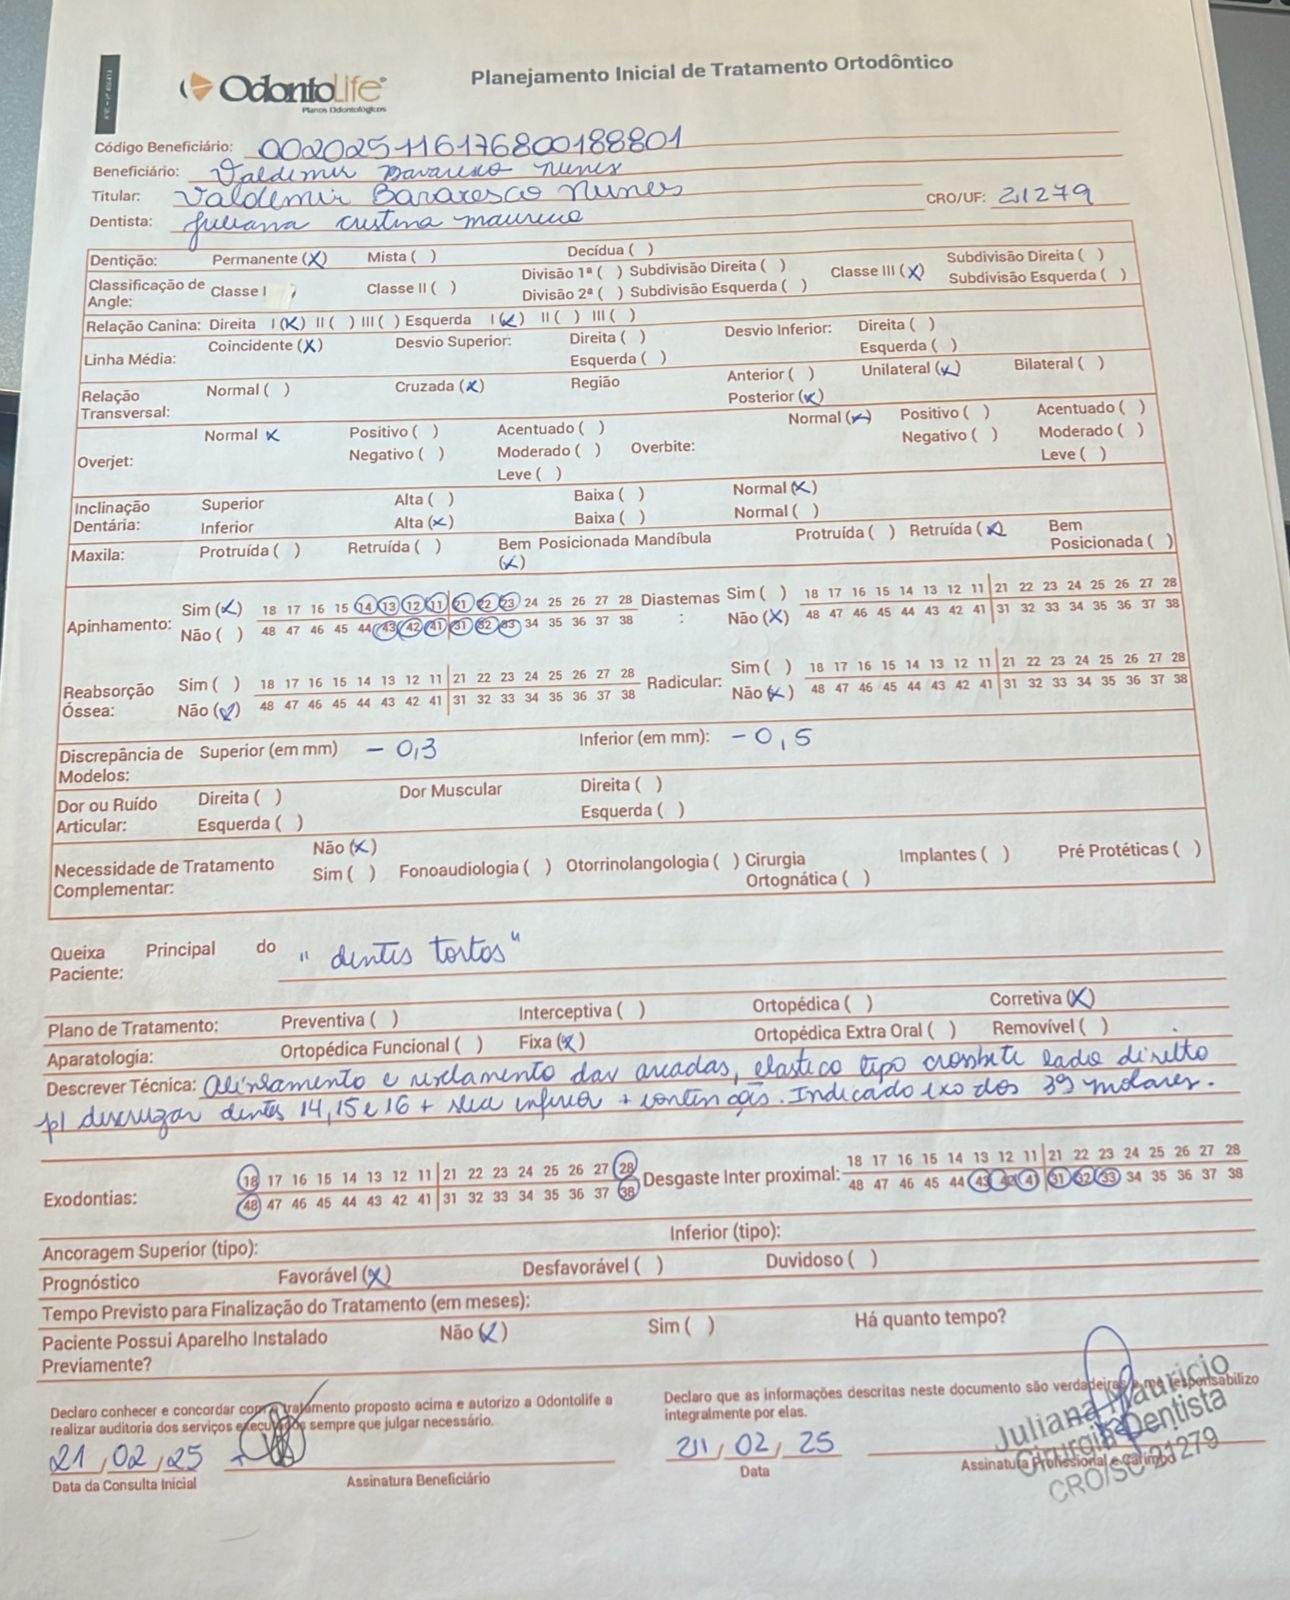 OdontoLife®
Planos Odontológicos
Planejamento Inicial de Tratamento Ortodôntico
Código Beneficiário: 002025116176800188801
Beneficiário: Valdemir Bavaresco nunes
Titular: Valdemir Bavaresco nunes CRO/UF: 21279
Dentista: Juliana cristina mauricio
Dentição: Permanente (X) Mista ( ) Decídua ( )
Classificação de Angle: Classe I Classe II ( ) Divisão 1ª ( ) Subdivisão Direita ( ) Classe III (X) Subdivisão Direita ( )
Divisão 2ª ( ) Subdivisão Esquerda ( ) Subdivisão Esquerda ( )
Relação Canina: Direita I (X) II ( ) III ( ) Esquerda I (X) II ( ) III ( )
Linha Média: Coincidente (X) Desvio Superior: Direita ( ) Desvio Inferior: Direita ( )
Esquerda ( ) Esquerda ( )
Relação Transversal: Normal ( ) Cruzada (X) Região Anterior ( ) Unilateral (X) Bilateral ( )
Posterior (X)
Overjet: Normal X Positivo ( ) Acentuado ( ) Overbite: Normal (X) Positivo ( ) Acentuado ( )
Negativo ( ) Moderado ( ) Negativo ( ) Moderado ( )
Leve ( ) Leve ( )
Inclinação Dentária: Superior Alta ( ) Baixa ( ) Normal (X)
Inferior Alta (X) Baixa ( ) Normal ( )
Maxila: Protruída ( ) Retruída ( ) Bem Posicionada (X) Mandíbula Protruída ( ) Retruída (X) Bem Posicionada ( )
Apinhamento: Sim (X) 18 17 16 15 14 13 12 11 21 22 23 24 25 26 27 28 Diastemas: Sim ( ) 18 17 16 15 14 13 12 11 21 22 23 24 25 26 27 28
Não ( ) 48 47 46 45 44 43 42 41 31 32 33 34 35 36 37 38 Não (X) 48 47 46 45 44 43 42 41 31 32 33 34 35 36 37 38
Reabsorção Óssea: Sim ( ) 18 17 16 15 14 13 12 11 21 22 23 24 25 26 27 28 Radicular: Sim ( ) 18 17 16 15 14 13 12 11 21 22 23 24 25 26 27 28
Não (X) 48 47 46 45 44 43 42 41 31 32 33 34 35 36 37 38 Não (X) 48 47 46 45 44 43 42 41 31 32 33 34 35 36 37 38
Discrepância de Modelos: Superior (em mm) - 0,3 Inferior (em mm): - 0,5
Dor ou Ruído Articular: Direita ( ) Dor Muscular Direita ( )
Esquerda ( ) Esquerda ( )
Necessidade de Tratamento Complementar: Não (X)
Sim ( ) Fonoaudiologia ( ) Otorrinolangologia ( ) Cirurgia Ortognática ( ) Implantes ( ) Pré Protéticas ( )
Queixa Principal do Paciente: "dentes tortos"
Plano de Tratamento: Preventiva ( ) Interceptiva ( ) Ortopédica ( ) Corretiva (X)
Aparatologia: Ortopédica Funcional ( ) Fixa (X) Ortopédica Extra Oral ( ) Removível ( )
Descrever Técnica: Alinhamento e nivelamento das arcadas, elastico tipo crossbite lado direito
p/ descruzar dentes 14, 15 e 16 + slice inferior + contenções. Indicado exo dos 3ºs molares.
Exodontias: 18 17 16 15 14 13 12 11 21 22 23 24 25 26 27 28 Desgaste Inter proximal: 18 17 16 15 14 13 12 11 21 22 23 24 25 26 27 28
48 47 46 45 44 43 42 41 31 32 33 34 35 36 37 38 48 47 46 45 44 43 42 41 31 32 33 34 35 36 37 38
Ancoragem Superior (tipo): Inferior (tipo):
Prognóstico Favorável (X) Desfavorável ( ) Duvidoso ( )
Tempo Previsto para Finalização do Tratamento (em meses):
Paciente Possui Aparelho Instalado Previamente? Não (X) Sim ( ) Há quanto tempo?
Declaro conhecer e concordar com o tratamento proposto acima e autorizo a Odontolife a
realizar auditoria dos serviços executados sempre que julgar necessário.
21/02/25
Data da Consulta Inicial Assinatura Beneficiário
Declaro que as informações descritas neste documento são verdadeiras e me responsabilizo
integralmente por elas.
21/02/25
Data Assinatura Profissional e Carimbo
Juliana Mauricio
Cirurgiã Dentista
CRO/SC 21279